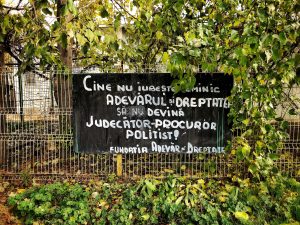 CINE NU IUBEȘTE NIMIC
ADEVĂRUL ȘI DREPTATEA
SĂ NU DEVINĂ
JUDECĂTOR-PROCUROR
POLITIST!
FUNDAȚIA ADEVĂR ȘI DREPTATE